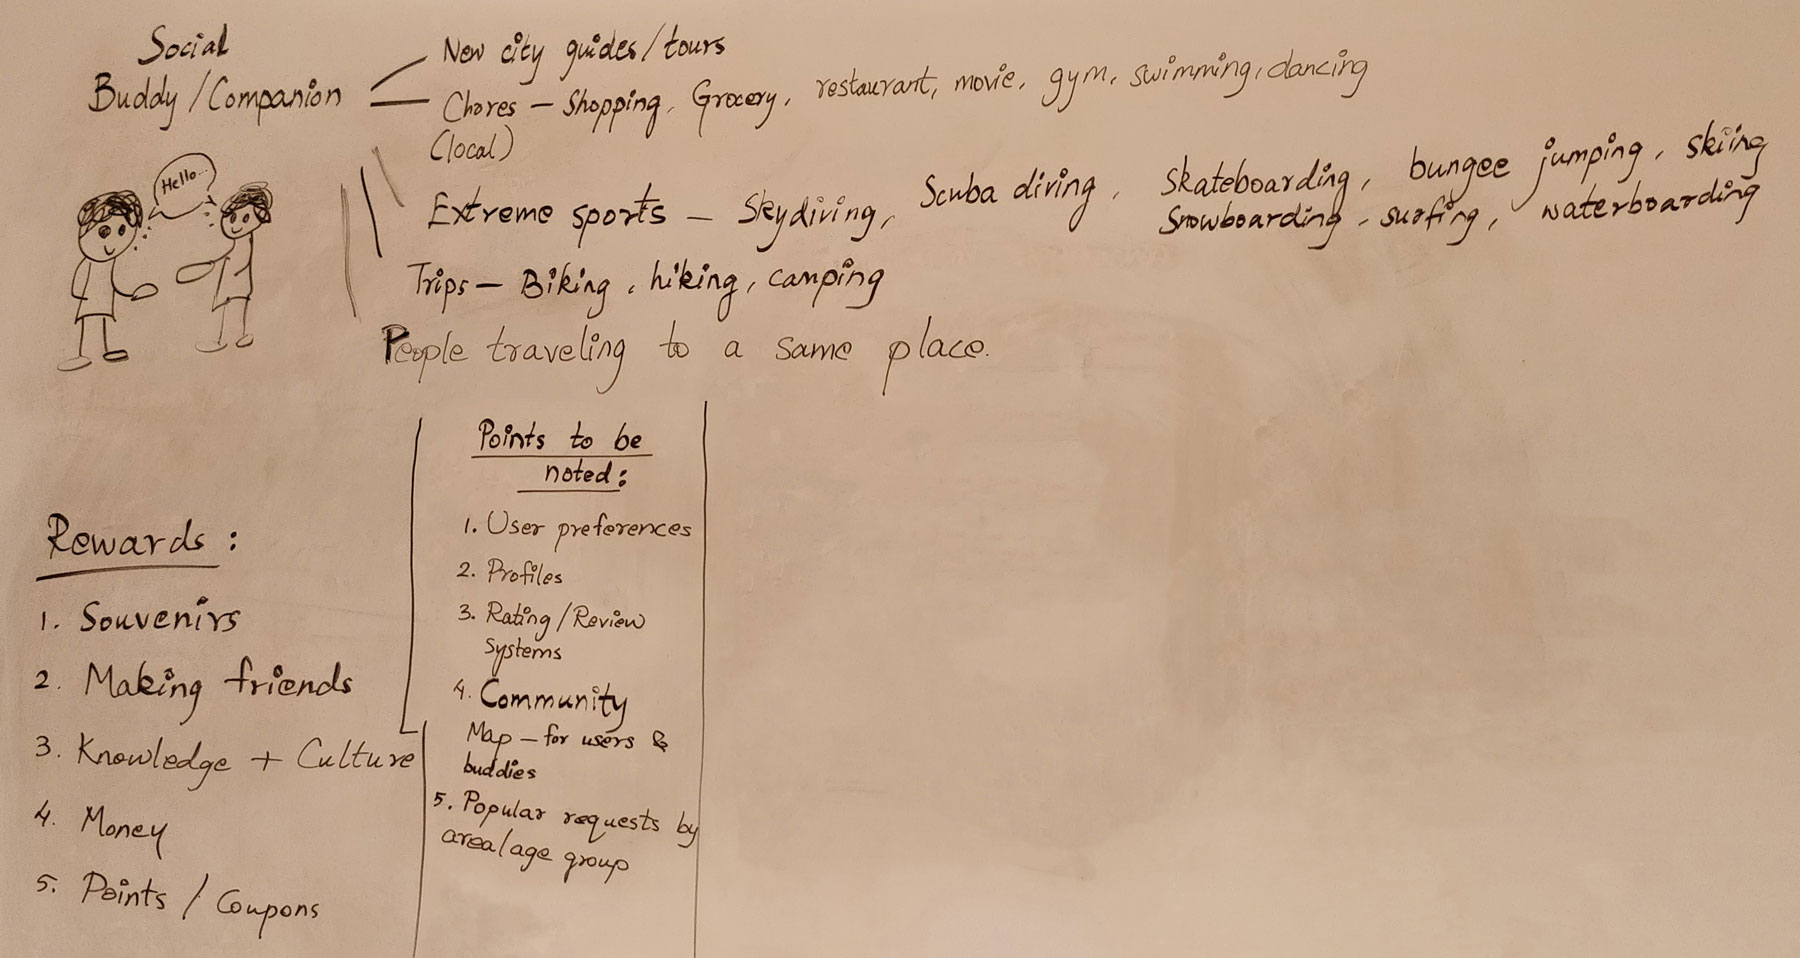 Social
Buddy/Companion
New city guides/tours
Chores – Shopping, Grocery, restaurant, movie, gym, swimming, dancing
(local)
Hello...
Extreme sports – Skydiving, Scuba diving, Skateboarding, bungee jumping, skiing
Snowboarding, surfing, waterboarding
Trips – Biking, hiking, camping
People traveling to a same place.
Rewards:
1. Souvenirs
2. Making friends
3. Knowledge + Culture
4. Money
5. Points / Coupons
Points to be
noted:
1. User preferences
2. Profiles
3. Rating/Review
Systems
4. Community
Map – for users &
buddies
5. Popular requests by
area/age group